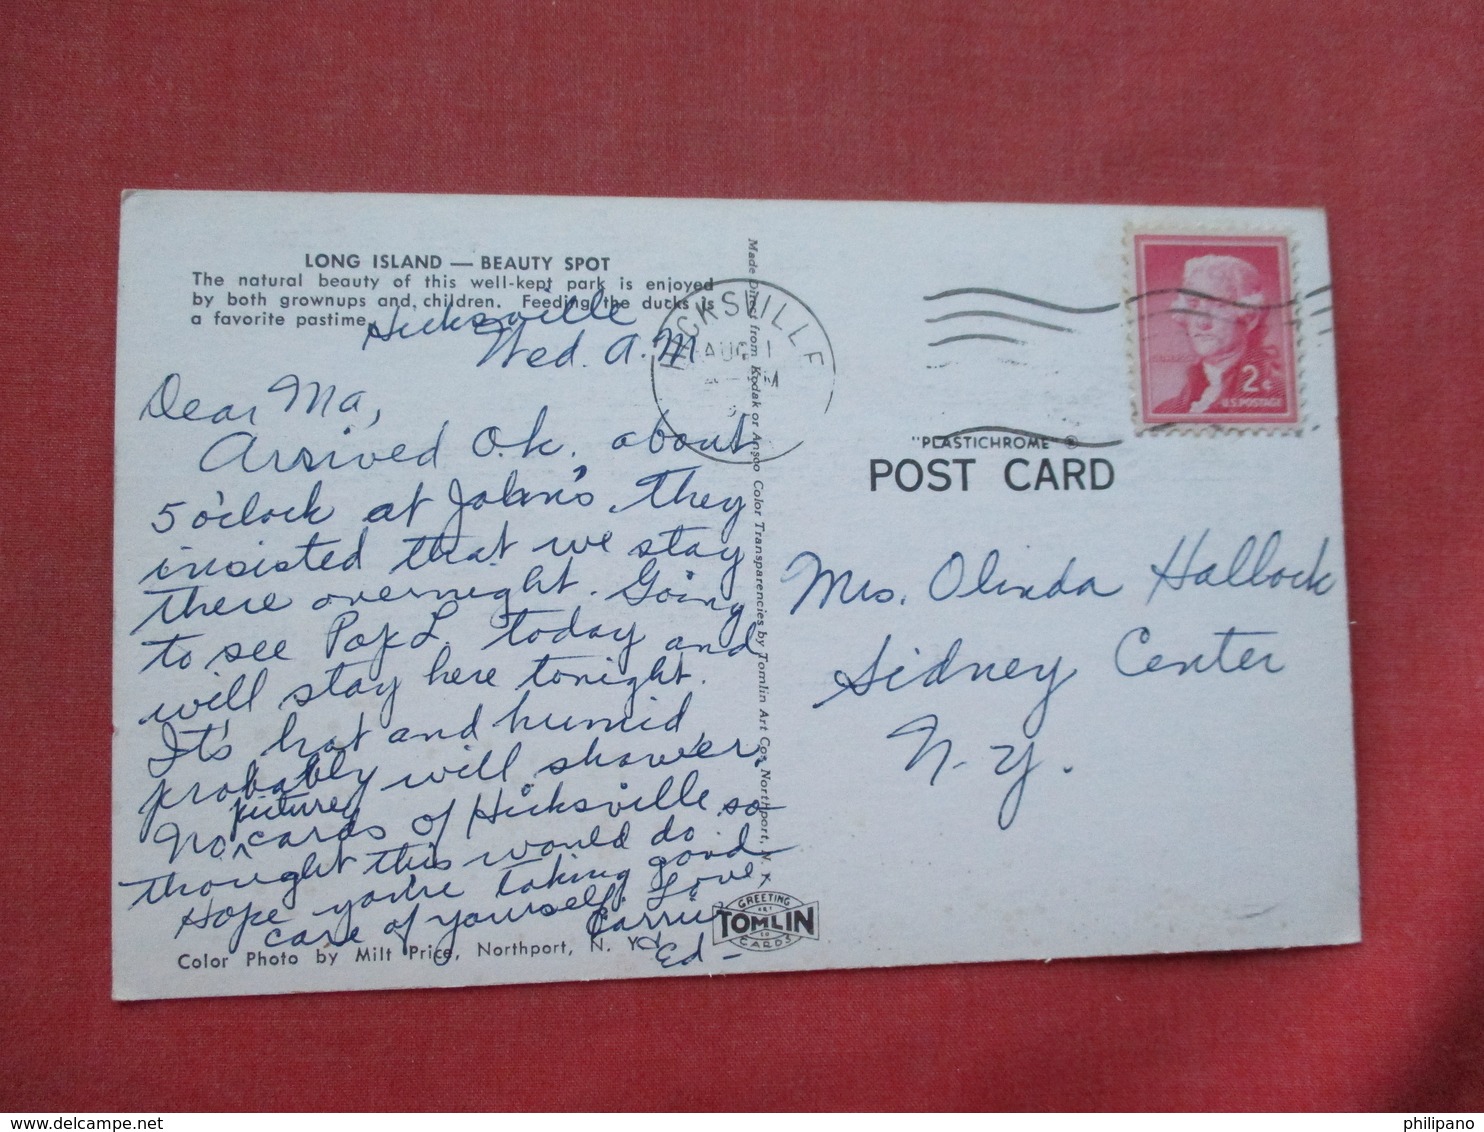 LONG ISLAND — BEAUTY SPOT
The natural beauty of this well-kept park is enjoyed
by both grownups and children. Feeding the ducks is
a favorite pastime.
Hicksville
Wed. A.M
Dear Ma,
Arrived O.k. about
5 o'clock at John's, they
insisted that we stay
there overnight. Going
to see Pop L. today and
will stay here tonight.
It's hot and humid,
probably will shower.
No picture cards of Hicksville so
thought this would do.
Hope you're taking good
care of yourself. Love,
Carrie
Ed-
Color Photo by Milt Price, Northport, N. Y.
Made Direct from Kodak or Ansco Color Transparencies by Tomlin Art Co., Northport, N. Y.
GREETING
ART
TOMLIN
CO
CARDS
HICKSVILLE
AUG 1
2¢
U.S. POSTAGE
"PLASTICHROME" ®
POST CARD
Mrs. Olinda Hallock
Sidney Center
N.Y.
philipano
delcampe.net